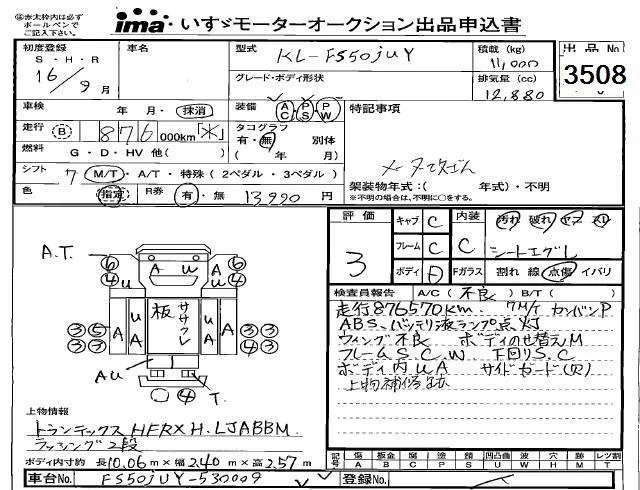 ㊟赤太枠内は必ず
ボールペンで
ご記入下さい。
ima いすゞモーターオークション出品申込書
初度登録
S・H・R
16/9月
車名
型式 KL-FS50JUY
グレード・ボディ形状
積載 (kg)
11,000
排気量 (cc)
12,880
出品No.
3508
車検 年・月・抹消
装備 AC・PS・PW
特記事項
走行 B 876 000km「*」
タコグラフ
有・無 別体
( 年 月)
燃料 G・D・HV 他( )
シフト 7 M/T・A/T・特殊(2ペダル・3ペダル)
色 指定 R券 有・無 13,990 円
架装物年式:( 年式)・不明
※不明の場合は、不明に○をする。
評価 3
キャブ C
フレーム C
ボディ D
内装 C
Fガラス
汚れ 破れ ヤケ スリ
シートエグレ
割れ 線 点傷 イバリ
検査員報告 A/C(不良) B/T( )
走行876570km. 7M/T カンバンP
ABS、バッテリ液ランプ点灯
ウィング不良 ボディのせ替えM
フレームS.C.W 下回りS.C
ボディ内UA サイドガード(欠)
上物補修跡
A.T.
⑥ A U ⑥
④ U U ④
③⑤ A A 板 ササクレ A U ③③
③③ ④③
AU T.
④
上物情報
トランテックス HFRXH.LJABBM.
ラッシング2段
ボディ内寸約 長10.06m×幅2.40m×高2.57m
記号 傷 板金 腐 塗 錆 凹 凸 曲 ウエーブ 波 穴 無 レツ割
A B C P S U W H M T
車台No. FS50JUY-530009
登録No.